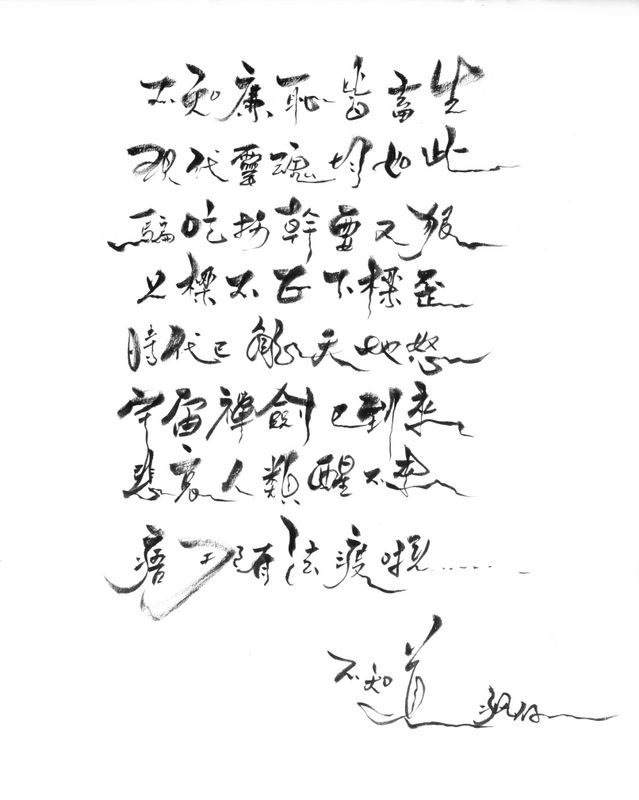 不知廉恥皆畜生
現代靈魂均如此
騙吃 幹耍又狠
上樑不正下樑歪
時代已 天地怒
宇宙禪劍已到來
悲哀人類醒不來
有法渡啦……
不知道